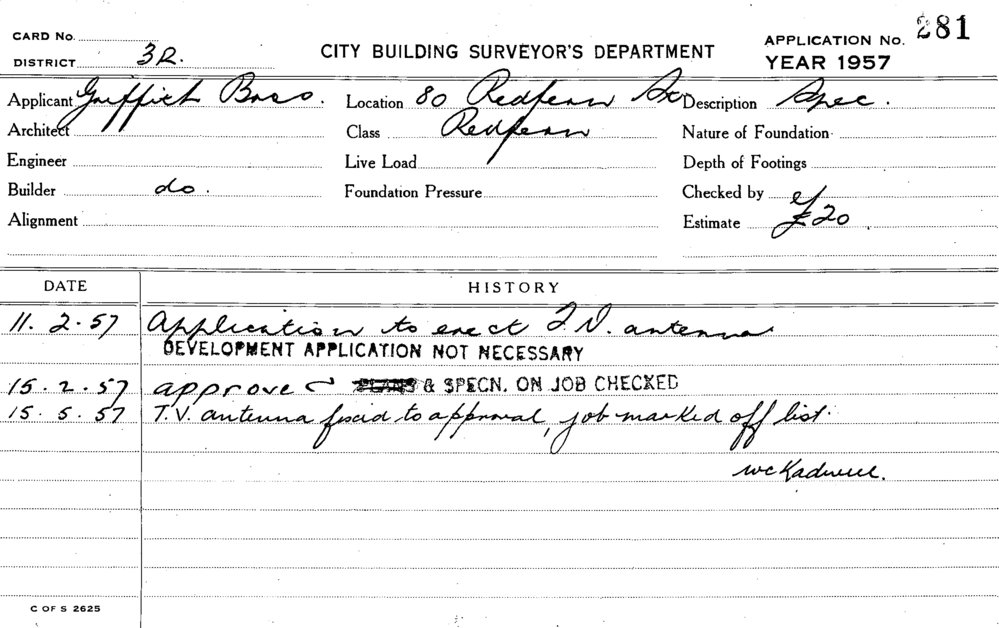 CARD No.
DISTRICT 3R.
CITY BUILDING SURVEYOR'S DEPARTMENT
APPLICATION No. 281
YEAR 1957
Applicant Griffith Bros. Location 80 Redfern St Description Spec.
Architect Class Redfern Nature of Foundation
Engineer Live Load Depth of Footings
Builder do. Foundation Pressure Checked by
Alignment Estimate £20
DATE HISTORY
11.2.57 Application to erect T.V. antenna
DEVELOPMENT APPLICATION NOT NECESSARY
15.2.57 approve & SPECN. ON JOB CHECKED
15.5.57 T.V. antenna fixed to approval, job marked off list.
C OF S 2625